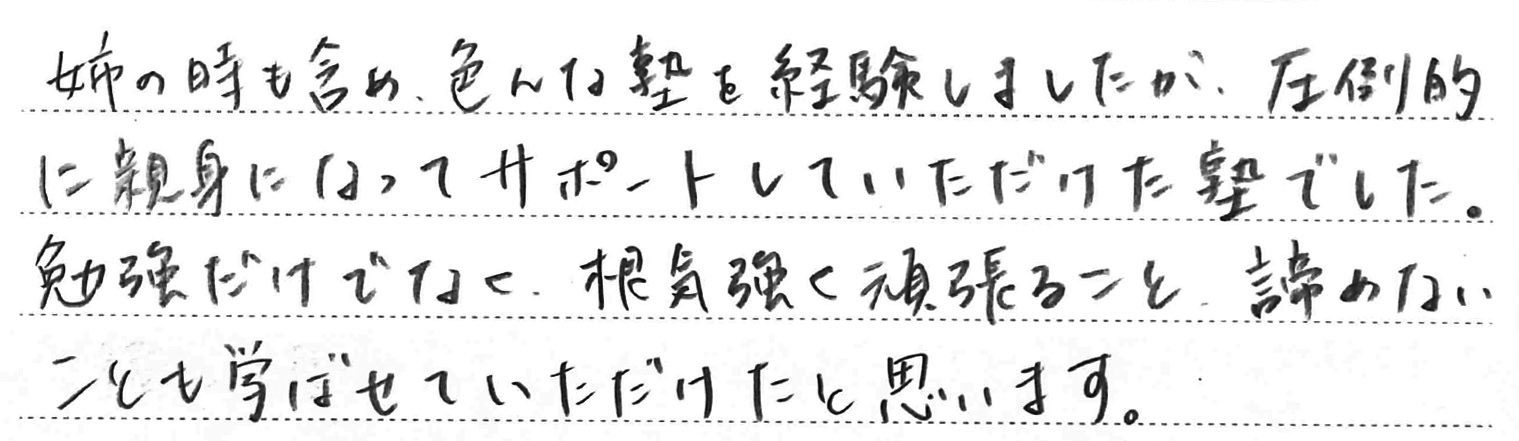 姉の時も含め、色んな塾を経験しましたが、圧倒的
に親身になってサポートしていただけた塾でした。
勉強だけでなく、根気強く頑張ること、諦めない
ことも学ばせていただけたと思います。